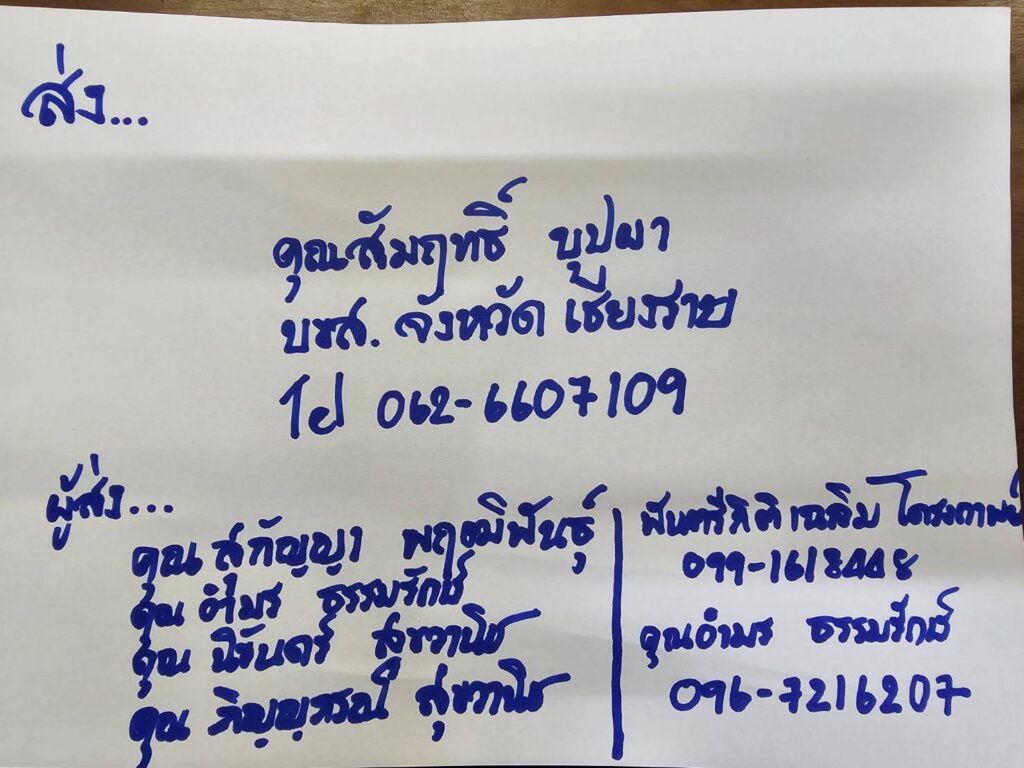 ส่ง...
คุณสัมฤทธิ์ บุปผา
บขส. จังหวัด เชียงราย
โทร 062-6607109
ผู้ส่ง...
คุณ สุกัญญา พฤฒิพันธุ์
คุณ อำมร ธรรมรักษ์
คุณ นิรันดร์ สุขวานิช
คุณ สุขวานิช
พันตรีกิติเฉลิม
099-1618448
คุณอำมร ธรรมรักษ์
096-7216207